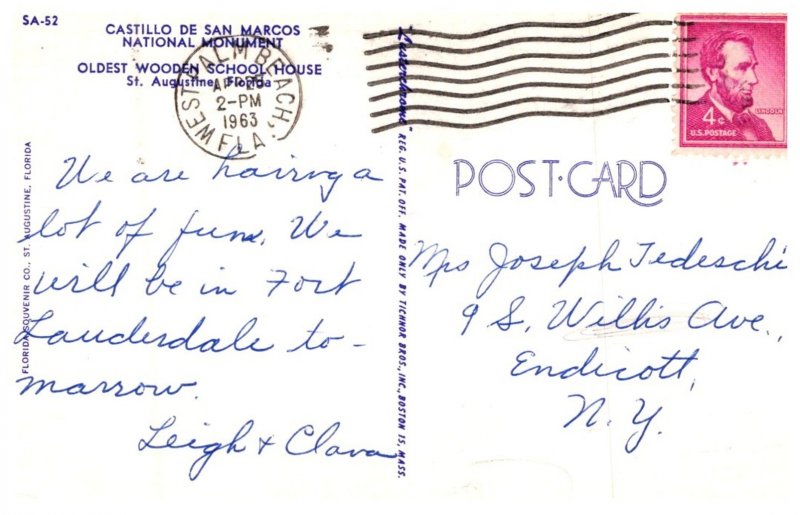 SA-52
CASTILLO DE SAN MARCOS
NATIONAL MONUMENT
OLDEST WOODEN SCHOOL HOUSE
St. Augustine, Florida
WEST PALM BEACH, FLA.
APR
2-PM
1963
We are hairvg a
lot of fun. We
will be in Fort
Lauderdale to-
marrow.
Leigh + Clava
FLORIDA SOUVENIR CO., ST. AUGUSTINE, FLORIDA
"Lusterchrome" REG. U.S. PAT. OFF. MADE ONLY BY TICHNOR BROS., INC., BOSTON 15, MASS.
4¢
LINCOLN
U.S. POSTAGE
POST·CARD
Mrs Joseph Tedeschi
9 S. Willis Ave.,
Endicott,
N. Y.